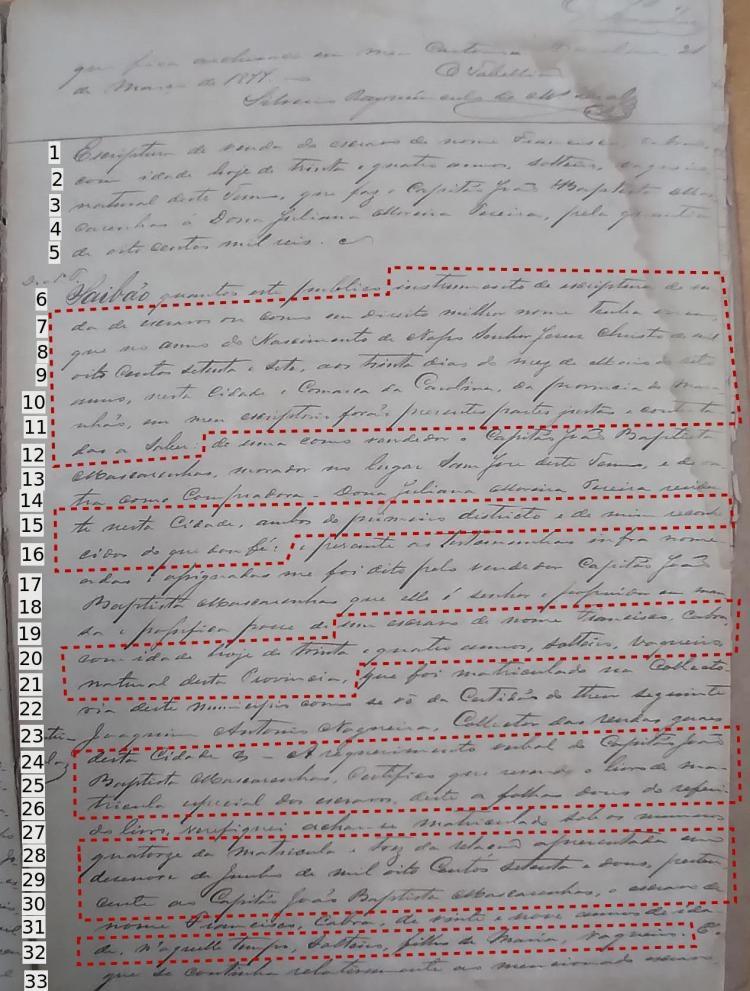 que fica archivado em meu Cartorio 21
de Março de 1877.
O Tabellião
1 Escriptura de venda do escravo de nome Francisco, cabra,
2 com idade hoje de trinta e quatro annos, solteiro, vaqueiro
3 natural deste Termo, que faz o Capitão João Baptista Mas-
4 carenhas á Dona Juliana Moreira Pereira, pela quantia
5 de oito centos mil reis.
6 Saibão quantos este publico instrumento de escriptura de ven-
7 da de escravo ou como em direito milhor nome tenha virem
8 que no anno do Nascimento de Nosso Senhor Jesus Christo de mil
9 oito Centos setenta e sete, aos trinta dias do mez de Maio do dito
10 anno, nesta Cidade e Comarca da Carolina, da provincia do Mara-
11 nhão, em meu escriptorio forão presentes partes justas e contrata-
12 das a saber: de uma como vendedor o Capitão João Baptista
13 Mascarenhas, morador no lugar Sam José deste Termo, e de ou-
14 tra como Compradora - Dona Juliana Moreira Pereira residen-
15 te nesta Cidade, ambos do primeiro districto e de mim reconhe-
16 cidos do que dou fé: e perante as testemunhas infra nome-
17 adas e assignadas me foi dito pelo vendedor Capitão João
18 Baptista Mascarenhas que elle é senhor e possuidor em man-
19 sa e passifica posse de um escravo de nome Francisco, Cabra
20 com idade hoje de trinta e quatro annos, solteiro, vaqueiro,
21 natural desta Provincia, que foi matriculado na Collecto-
22 ria deste municipio como se vê da Certidão do theor seguinte
23 Joaquim Antonio Nogueira, Collector das rendas geraes
24 desta Cidade &. - A requerimento verbal do Capitão João
25 Baptista Mascarenhas, Certifico que revendo o livro de ma-
26 tricula especial dos escravos, deste a folhas dous do referi-
27 do livro, verifiquei achar-se matriculado sob os numeros
28 quatorze da matricula e da relação apresentada em
29 desenove de Junho de mil oito Centos setenta e dous, perten-
30 cente ao Capitão João Baptista Mascarenhas, o escravo de
31 nome Francisco, Cabra, de vinte e nove annos de ida-
32 de, n'aquelle tempo, solteiro, filho de Maria, vaqueiro. E
33 que se continha relativamente ao mencionado escravo